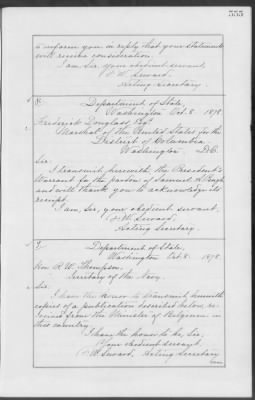 555
to inform you in reply that your statements
will receive consideration.
I am, Sir, your obedient servant,
F. W. Seward,
Acting Secretary.
Department of State,
Washington Oct. 8 1878.
Frederick Douglass, Esqr
Marshal of the United States for the
District of Columbia,
Washington D.C.
Sir:
I transmit, herewith, the President's
Warrant for the pardon of Samuel
and will thank you to acknowledge its
receipt.
I am, Sir, your obedient servant,
F. W. Seward,
Acting Secretary.
Department of State,
Washington Oct. 8. 1878.
Hon. R. W. Thompson,
Secretary of the Navy.
Sir:
I have the honor to transmit, herewith
copies of a publication described below, re-
ceived from the Minister of Belgium in
this country.
I have the honor to be, Sir,
Your obedient servant,
F. W. Seward, Acting Secretary